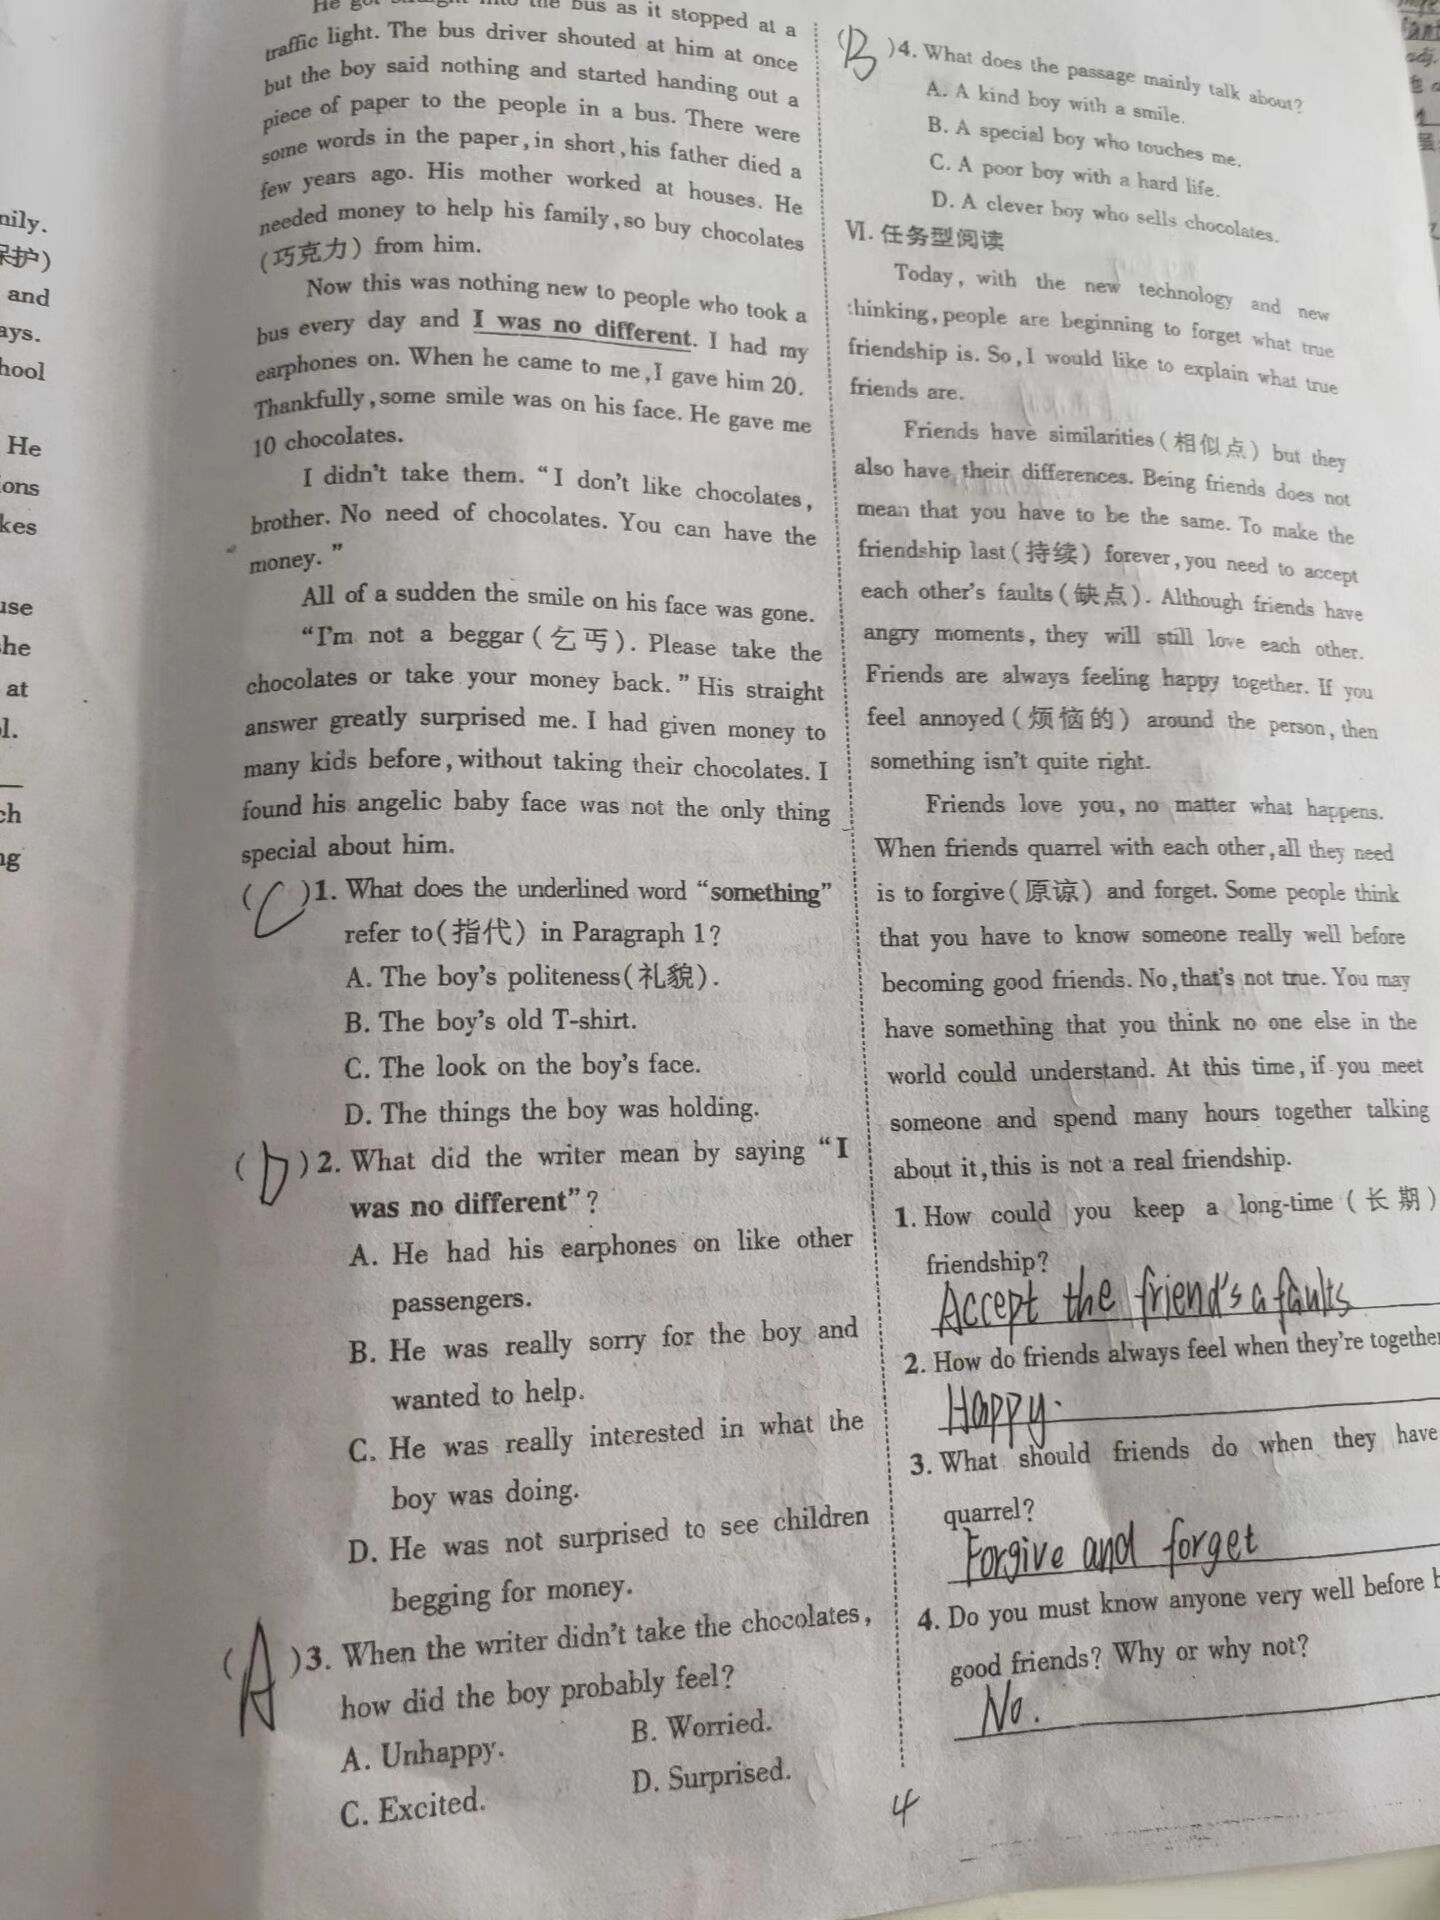 nily.
保护)
and
ays.
hool
He
ions
kes
use
she
at
l.
ch
ng
bus as it stopped at a
traffic light. The bus driver shouted at him at once
but the boy said nothing and started handing out a
piece of paper to the people in a bus. There were
some words in the paper, in short, his father died a
few years ago. His mother worked at houses. He
needed money to help his family, so buy chocolates
(巧克力) from him.
Now this was nothing new to people who took a
bus every day and I was no different. I had my
earphones on. When he came to me, I gave him 20.
Thankfully, some smile was on his face. He gave me
10 chocolates.
I didn't take them. "I don't like chocolates,
brother. No need of chocolates. You can have the
money."
All of a sudden the smile on his face was gone.
"I'm not a beggar (乞丐). Please take the
chocolates or take your money back." His straight
answer greatly surprised me. I had given money to
many kids before, without taking their chocolates. I
found his angelic baby face was not the only thing
special about him.
(C)1. What does the underlined word "something"
refer to(指代) in Paragraph 1?
A. The boy's politeness(礼貌).
B. The boy's old T-shirt.
C. The look on the boy's face.
D. The things the boy was holding.
(D)2. What did the writer mean by saying "I
was no different"?
A. He had his earphones on like other
passengers.
B. He was really sorry for the boy and
wanted to help.
C. He was really interested in what the
boy was doing.
D. He was not surprised to see children
begging for money.
(A)3. When the writer didn't take the chocolates,
how did the boy probably feel?
A. Unhappy. B. Worried.
C. Excited. D. Surprised.
(B)4. What does the passage mainly talk about?
A. A kind boy with a smile.
B. A special boy who touches me.
C. A poor boy with a hard life.
D. A clever boy who sells chocolates.
Ⅵ. 任务型阅读
Today, with the new technology and new
thinking, people are beginning to forget what true
friendship is. So, I would like to explain what true
friends are.
Friends have similarities (相似点) but they
also have their differences. Being friends does not
mean that you have to be the same. To make the
friendship last (持续) forever, you need to accept
each other's faults (缺点). Although friends have
angry moments, they will still love each other.
Friends are always feeling happy together. If you
feel annoyed (烦恼的) around the person, then
something isn't quite right.
Friends love you, no matter what happens.
When friends quarrel with each other, all they need
is to forgive (原谅) and forget. Some people think
that you have to know someone really well before
becoming good friends. No, that's not true. You may
have something that you think no one else in the
world could understand. At this time, if you meet
someone and spend many hours together talking
about it, this is not a real friendship.
1. How could you keep a long-time (长期)
friendship?
Accept the friend's a faults
2. How do friends always feel when they're together
Happy.
3. What should friends do when they have
quarrel?
Forgive and forget
4. Do you must know anyone very well before b
good friends? Why or why not?
No.
4